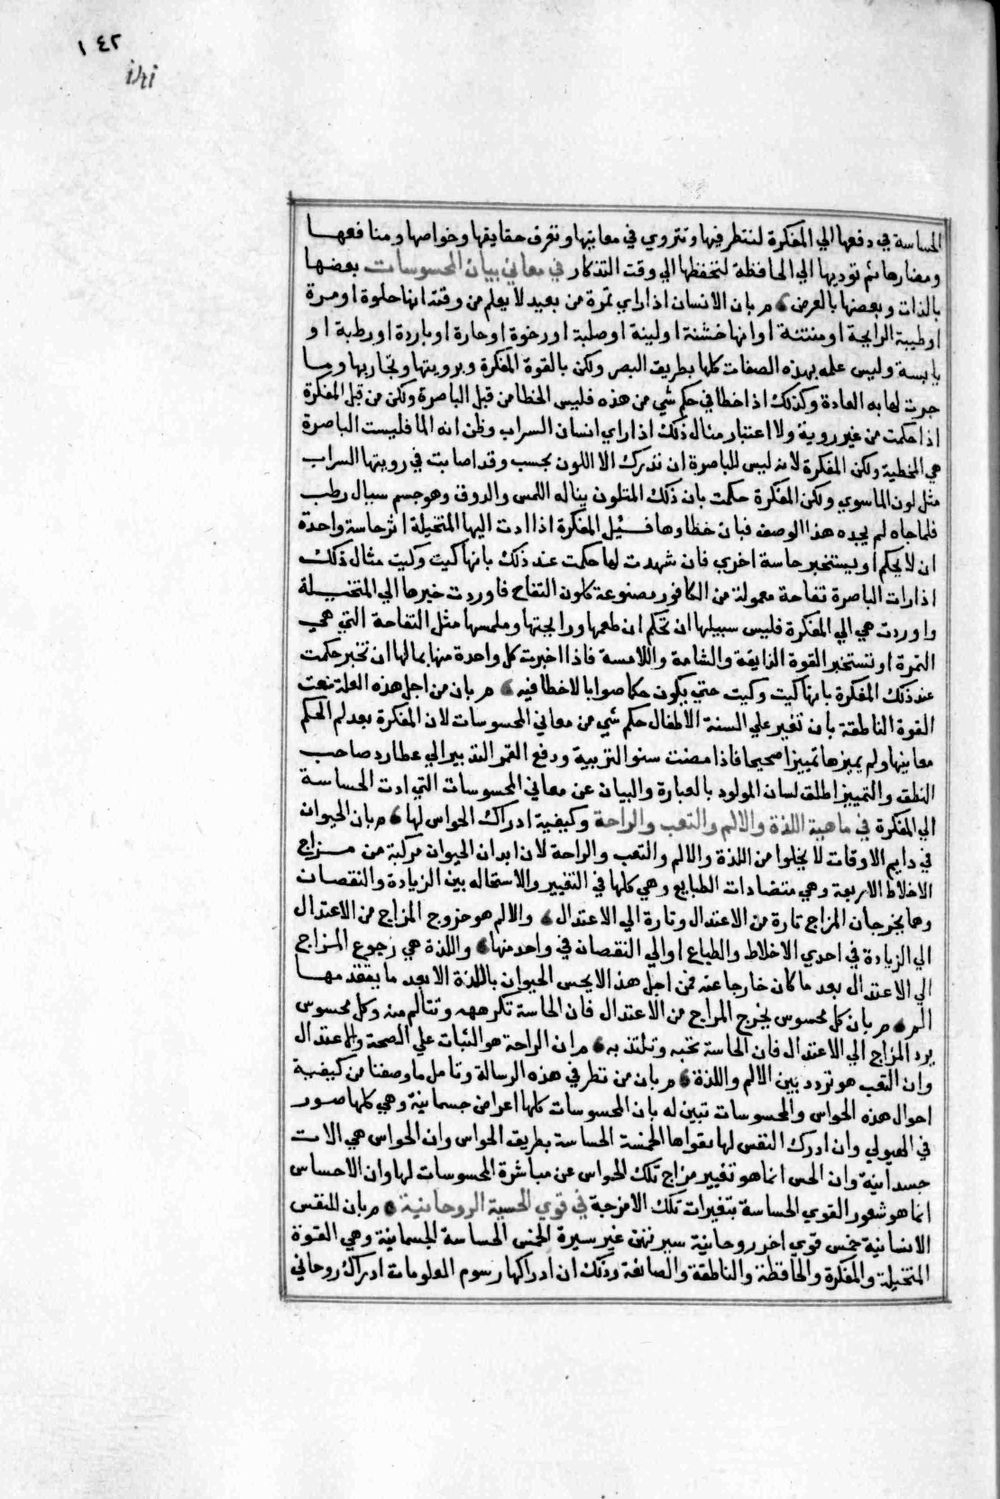 ١٤٢
الحساسة في دفعها الي المفكرة لتنظر فيها وتتروي في معانيها وتعرف حقايقها وخواصها ومنافعها
ومضارها ثم توديها الي الحافظة لتحفظها الي وقت التذكار في معاني بيان المحسوسات بعضها
بالذات وبعضها بالعرض م ر بان الانسان اذا راي ثمرة من بعيد لا يعلم من وقته انها حلوة او مرة
او طيبة الرايحة او منتنة او انها خشنة او لينة او صلبة او رخوة او حارة او باردة او رطبة او
يابسة وليس علمه بهذه الصفات كلها بطريق البصر ولكن بالقوة المفكرة وبرويتها وتجاربها وما
جرت لها به العادة وكذلك اذا خطا في حكم شي من هذه فليس الخطا من قبل الباصرة ولكن من قبل المفكرة
اذا حكمت من غير روية ولا اعتبار مثال ذلك اذا راي انسان السراب وظن انه الما فليست الباصرة
هي المخطية ولكن المفكرة لانه ليس للباصرة ان تدرك الا اللون بحسب وقد اصابت في رويتها السراب
مثل لون الما سوي ولكن المفكرة حكمت بان ذلك المتلون يناله اللمس والذوق وهو جسم سيال رطب
فلما جاه لم يجده هذا الوصف فبان خطاوها فسبيل المفكرة اذا ادت اليها المتخيلة اثر حاسة واحدة
ان لا يحكم او يستخبر حاسة اخري فان شهدت لها حكمت عند ذلك بانها كيت وكيت مثال ذلك
اذا رات الباصرة تفاحة معمولة من الكافور مصنوعة كلون التفاح فاوردت خبرها الي المتخيلة
واوردت هي الي المفكرة فليس سبيلها ان تحكم ان طعمها ورايحتها وملمسها مثل التفاحة التي هي
الثمرة او تستخبر القوة الذايقة والشامة واللامسة فاذا اخبرت كل واحدة منها بما لها ان تخبر حكمت
عند ذلك المفكرة بانها كيت وكيت حتي يكون حكما صوابا لا خطا فيه م ر بان من اجل هذه العلة منعت
القوة الناطقة بان تعبر علي السنة الاطفال حكم شي من معاني المحسوسات لان المفكرة بعد لم الحكم
معانيها ولم يميزها تمييزا صحيحا فاذا مضت سنو التربية ودفع القمر التدبير الي عطارد صاحب
النطق والتمييز اطلق لسان المولود بالعبارة والبيان عن معاني المحسوسات التي ادت الحساسة
الي المفكرة في ماهية اللذة والالم والتعب والراحة وكيفية ادراك الحواس لها م ر بان الحيوان
في دايم الاوقات لا يخلوا من اللذة والالم والتعب والراحة لان ابدان الحيوان مركبة من مزاج
الاخلاط الاربعة وهي متضادات الطبايع وهي كلها في التغيير والاستحاله بين الزيادة والنقصان
وهما يخرجان المزاج تارة من الاعتدال وتارة الي الاعتدال والالم هو خروج المزاج من الاعتدال
الي الزيادة في احدي الاخلاط والطباع او الي النقصان في واحد منها واللذة هي رجوع المزاج
الي الاعتدال بعد ما كان خارجا عنه فمن اجل هذا لا يحس الحيوان باللذة الا بعد ما يتقدمها
الم م ر بان كل محسوس يخرج المزاج من الاعتدال فان الحاسة تكرهه وتتالم منه وكل محسوس
يرد المزاج الي الاعتدال فان الحاسة تحبه وتلتذ به م ر ان الراحة هو الثبات علي الصحة والاعتدال
وان التعب هو تردد بين الالم واللذة م ر بان من نظر في هذه الرسالة وتامل ما وصفنا من كيفية
احوال هذه الحواس والمحسوسات تبين له بان المحسوسات كلها اعراض جسمانية وهي كلها صور
في الهيولي وان ادرك النفس لها بقواها الخمسة الحساسة بطريق الحواس وان الحواس هي الات
جسدانية وان الحس انما هو تغيير مزاج تلك الحواس عن مباشرة المحسوسات لها وان الاحساس
انما هو شعور القوي الحساسة بتغيرات تلك الامزجة في قوي الحسية الروحانية م ر بان للنفس
الانسانية خمس قوي اخر روحانية سيرتهن غير سيرة الخمس الحساسة الجسمانية وهي القوة
المتخيلة والمفكرة والحافظة والناطقة والصانعة وذلك ان ادراكها رسوم المعلومات ادراك روحاني